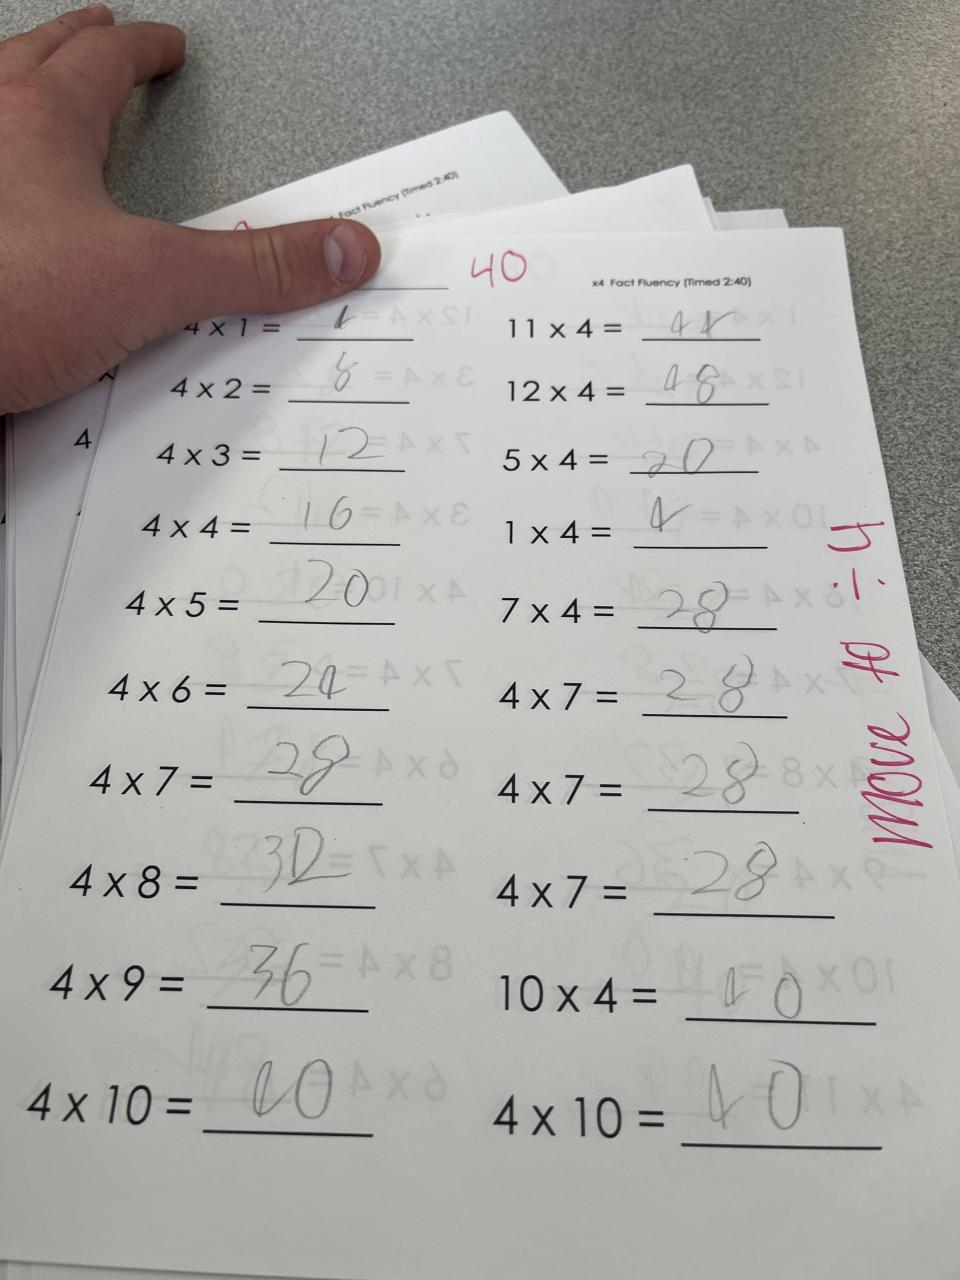 Fact Fluency (Timed 2:40)
40
x4 Fact Fluency (Timed 2:40)
4 x 1 = 4
11 x 4 = 44
4 x 2 = 8
12 x 4 = 48
4
4 x 3 = 12
5 x 4 = 20
4 x 4 = 16
1 x 4 = 4
4 x 5 = 20
7 x 4 = 28
4 x 6 = 24
4 x 7 = 28
4 x 7 = 28
4 x 7 = 28
4 x 8 = 32
4 x 7 = 28
4 x 9 = 36
10 x 4 = 40
4 x 10 = 40
4 x 10 = 40
move to ÷ 4